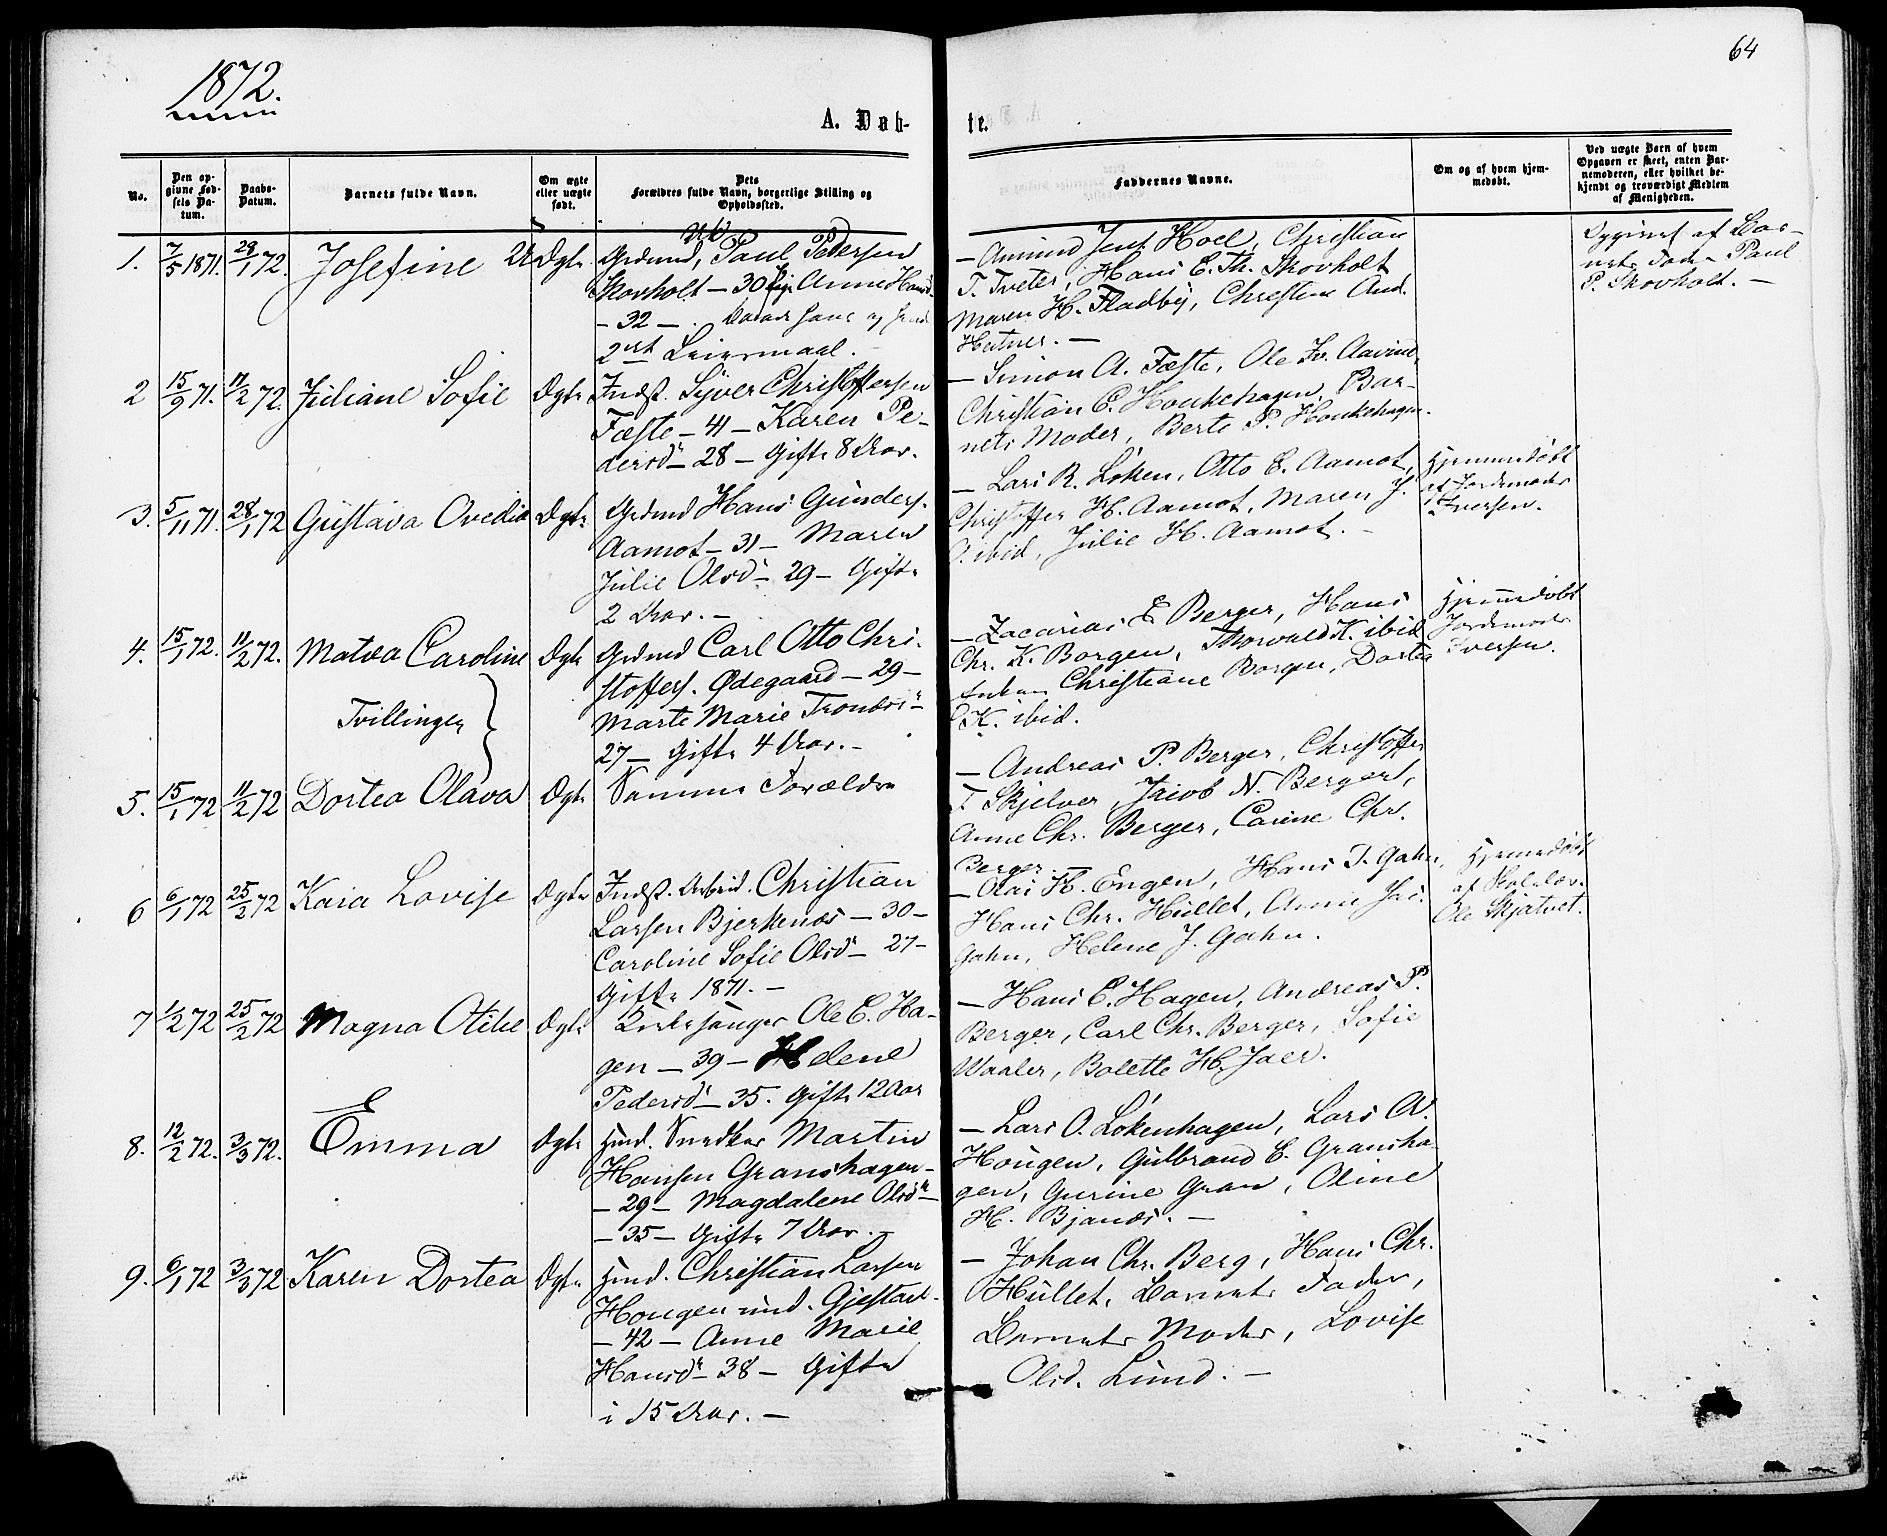 1872.
64
A. Døb-
te.
No.
Den op-
givne Fød-
sels Da-
tum.
Daabs-
Datum.
Barnets fulde Navn.
Om ægte
eller uægte
født.
Dets
Forældres fulde Navn, borgerlige Stilling og
Opholdssted.
Faddernes Navne.
Om og af hvem hjem-
medøbt.
Ved uægte Børn af hvem
Opgaven er skeet, enten Bar-
nemoderen, eller hvilket be-
kjendt og troværdigt Medlem
af Menigheden.
1. 7/5 1871. 28/1 72. Josefine Uægte
Grdmd, Paul Pedersen
Skovholt – 30 Pige Anne Hansd.
– 32 –
2det Leiermaal.
– Amund Jens. Hoel, Christian
T. Tveter, Hans E. Th. Skovholt
Maren H. Fladby, Christine And.
Opgivet af Bar-
nets Fader Paul
P. Skovholt. –
2 15/9 71. 11/2 72. Juliane Sofie Ægte
Indst. Syver Christoffersen
Fæste – 41 – Karen Pe-
dersdr – 28 – Gifte 8 Aar.
– Simon A. Fæste, Ole
Christian C. Houkehagen, Bar-
nets Moder, Berte P. Houkehagen.
3. 5/11 71. 28/1 72 Gustava Ovedia Ægte
Grdmd Hans Gunders.
Aamot – 31 – Maren
Julie Olsdr – 29 – Gifte
2 Aar. –
– Lars R. Løken, Otto E. Aamot,
Christoffer H. Aamot, Maren J.
O. ibid, Julie H. Aamot. –
Hjemmedøbt
af Jordemoder
Iversen.
4. 15/1 72. 11/2 72. Matea Caroline Ægte
Tvillinger
Grdmd Carl Otto Chri-
stoffers. Ødegaard – 29 –
Marte Marie Trondsdr
27 – Gifte 4 Aar. –
– Zacarias E Berger, Hans
Chr. K. Borgen, Thorvald K. ibid
Enken Christiane Borgen, Dortea
K. ibid.
Hjemmedøbt
Jordemoder
Iversen.
5. 15/1 72 11/2 72 Dortea Olava Ægte
Samme Forældre
– Andreas P. Berger, Christoffer
T. Skjelver, Jacob N. Berger,
Anne Chr. Berger, Carine Chr.
Berger.
6 6/1 72 25/2 72 Kaia Lovise Ægte
Indst. Arbeid. Christian
Larsen Bjerkenæs – 30 –
Caroline Sofie Olsdr – 27 –
Gifte 1871. –
– Olai H. Engen, Hans J. Gahn,
Hans Chr. Hullet, Anne Jac.
Gahn, Helene J. Gahn.
Hjemmedøbt
af Skolelær.
Ole Skjatvet.
7 1/2 72 25/2 72 Magna Otilie Ægte
Kirkesanger Ole E. Ha-
gen – 39 – Helene
Pedersdr – 35. Gifte 12 Aar
– Hans E. Hagen, Andreas P.
Berger, Carl Chr. Berger, Sofie
Waaler, Bolette H. Jaer.
8. 12/2 72. 3/3 72. Emma Ægte
Hmd. Snedker Martin
Hansen Granshagen –
– 29 – Magdalene Olsdr –
– 35 – Gifte 7 Aar. –
– Lars O. Løkenhagen, Lars A.
Hougen, Gulbrand E. Gransha-
gen, Gurine Gran, Oline
H. Bjanæs. –
9. 6/1 72 3/3 72 Karen Dortea Ægte
Hmd. Christian Larsen
Hougen und. Gjestad.
– 42 – Anne Marie
Hansdr – 38 – Gifte
i 15 Aar. –
– Johan Chr. Berg, Hans Chr.
Hullet, Barnets Fader,
Barnets Moder, Lovise
Olsd. Lund. –